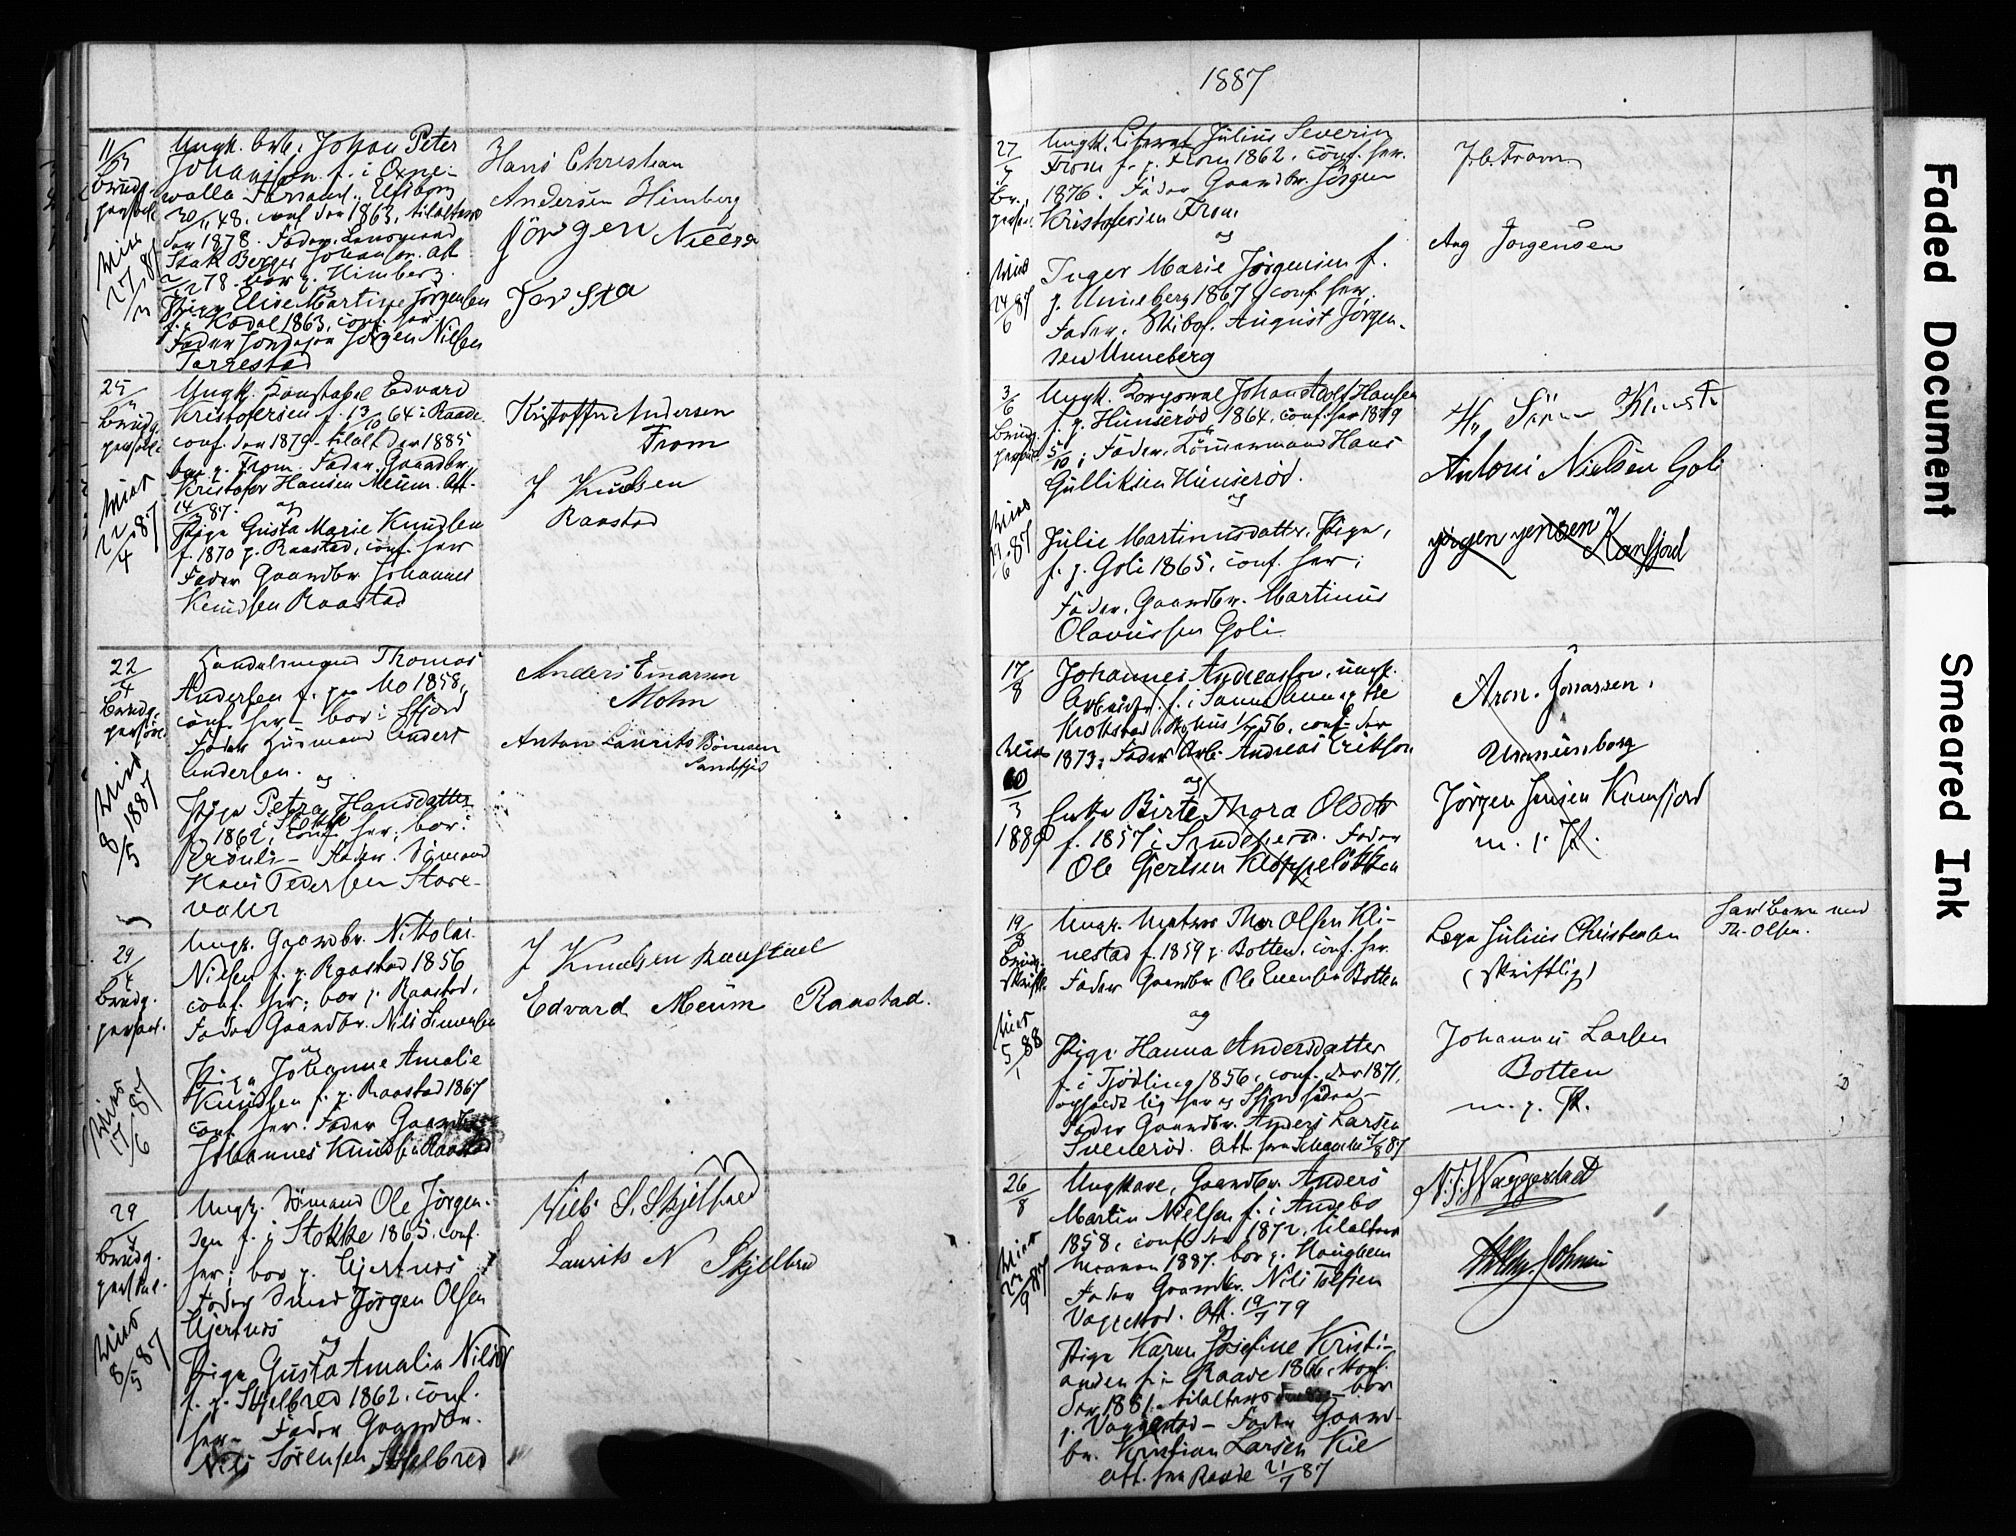 1887
11/3
Brudg.
personl.
Viet
27/3 87
Ungk. Arb. Johan Peter
Johansson f. i Oxne-
valla Elfsborg
30/11 48. conf. der 1863, tilalters
der 1878. Fader
Johanson. Att.
78. bor p. Himberg.
og
Pige Elise Martine Jørgensen
f. p. Kodal 1863, conf. her
Fader Jørgen Nilsen
Torrestad
Hans Christian
Andersen Himberg
Jörgen Nielsen
25/
Brudg.
personl.
Viet
22/4 87
Ungk. Konstabel Edvard
Kristofersen f. 13/10 64 i Raade
conf. der 1879 - tilalt. der 1885
bor p. From. Fader Gaardbr.
Kristofer Hansen Meum. Att.
14/ 87.
og
Pige Gusta Marie Knudsen
f. 1870 p. Raastad, conf. her
Fader Gaardbr. Johannes
Knudsen Raastad
Kristoffer Andersen
From
J Knudsen
Raastad
22/4
Brudg.
personl.
Viet
8/5 1887
Handelsmand Thomas
Andersen f. paa Mo 1858,
conf. her - bor i Sfjord
Fader Husmand Anders
Andersen.
og
Pige Petra Hansdatter
i Stokke
f. 1862, conf. her; bor i
Fader. Sømand
Hans Pedersen Store-
valer
Anders Einarsen
Mohn
Anton Laurits
Sandefjord
29/4
Brudg.
personl.
Viet
17/6 87
Ungk. Gaardbr. Nikolai
Nilsen f. p. Raastad 1856
conf. her; bor p. Raastad.
Fader Gaardbr. Nils Simensen
og
Pige Johanne Amalie
Knudsen f. p. Raastad 1867
conf. her. Fader Gaardbr.
Johannes Knudsen Raastad
J Knudsen Raastad
Edvard Meum Raastad.
29/4
Brudg.
personl.
Viet
8/5 87
Ungk. Sømand Ole Jørgen-
sen f. i Stokke 1865. conf.
her; bor p. Gjertnes
Fader Smed Jørgen Olsen
Gjertnes
og
Pige Gusta Amalia Nilsdtr
f. p. Skjelbred 1862. conf.
her - Fader Gaardbr.
Nils Sørensen Skjelbred
Niels S. Skjelbred
Laurits N Skjelbred
27/
Br.
personl.
Viet
24/6 87
Ungk. Julius Severin
From f. p. From 1862. conf. her.
1876. Fader Gaardbr. Jørgen
Kristofersen From
og
Inger Marie Jørgensen f.
p. Unneberg 1867, conf. her.
Fader. Skibsf. August Jørgen-
sen Unneberg
J. C. From
Aug Jørgensen
3/6
Brudg.
personl.
Viet
19/6 87
Ungk. Korporal Johan Adolf Hansen
f. p. Hunserød 1864. conf. her 1879
5/10; Fader. Tömmermand Hans
Gulliksen Hunserød.
og
Julie Martinusdatter, Pige,
f. p. Goli 1865, conf. her;
Fader. Gaardbr. Martinus
Olavussen Goli
Antoni Nielsen Goli
Jørgen Jensen Kamfjord
17/8
Viet
10/3
1889
Johannes Andreasson, ungk.
Arbeider f. i
Krokstad 56, conf. der
1873; Fader Arb. Andreas Erikson
og
Enke Birte Thora Olsdtr
f. 1857 i Sandefjord. Fader
Ole Gjertsen
Aron. Jonassen,
Unneberg
Jørgen Jensen Kamfjord
m. p. P.
19/8
Brudg.
skriftl.
Viet
5/1 88
Ungk. Matros Thor Olsen Kli-
nestad f. 1859 p. Botten, conf. her
Fader Gaardbr. Ole Evensen Botten
og
Pige Hanna Andersdatter
f. i Tjødling 1856, conf. der 1871,
opholdt sig her og Sfjord siden -
Fader Gaardbr. Anders Larsen
Svenerød. Att. fra 87
Læge Julius Christensen
(skriftlig)
Johannes Larsen
Botten
m. p. P.
har barn med
Th. Olsen.
26/8
Viet
/9 87
Ungkare, Gaardbr. Anders
Martin Nielsen f. i Andebo
1858, conf. der 1872, tilalters
1887. bor p. Haughem
Fader Gaardbr. Nils Tolfsen
Vaggestad. Att. 19/7 79
og
Pige Karen Josefine Kristi-
ansen f. i Raade 1866, konf.
der 1881. tilalters bor
p. Vaggestad - Fader Gaard-
br. Kristian Larsen Kil
att. fra Raade 21/7 87
N. T. Waggestad
Faded Document
Smeared Ink